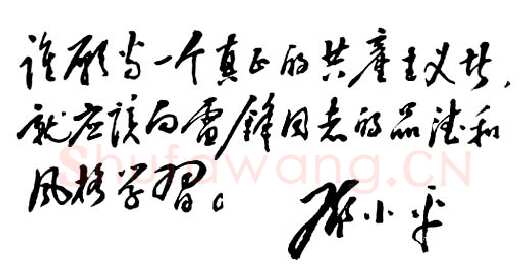 谁愿当一个真正的共产主义者，
就应该向雷锋同志的品德和
风格学习。
邓小平
Shufawang.CN